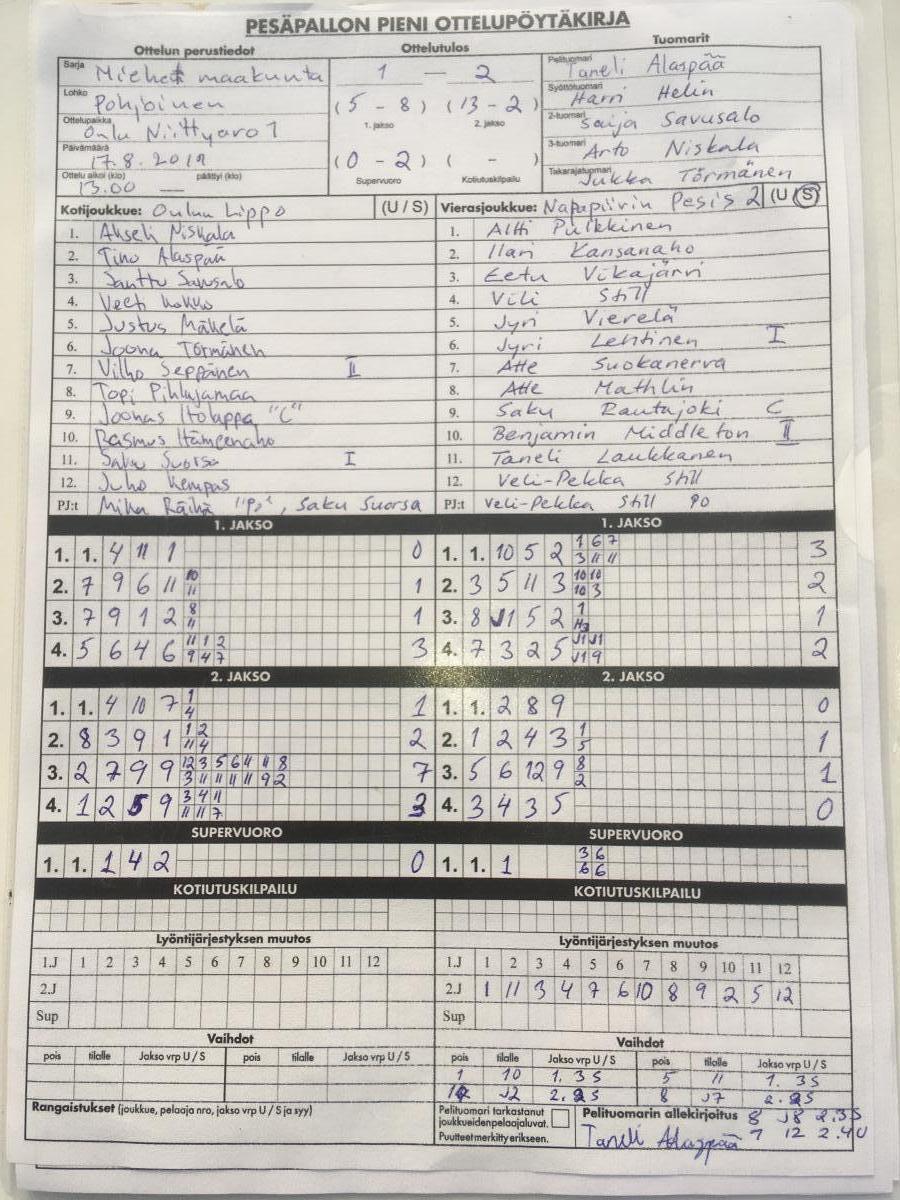 PESÄPALLON PIENI OTTELUPÖYTÄKIRJA
Ottelun perustiedot Ottelutulos Tuomarit
Sarja Miehet maakunta 1 — 2 Pelituomari Taneli Alaspää
Lohko Pohjoinen (5 - 8) (13 - 2) Syöttötuomari Harri Helin
Ottelupaikka Oulu Niittyaro 1 1. jakso 2. jakso 2-tuomari Saija Savusalo
Päivämäärä 17.8.2019 (0 - 2) ( - ) 3-tuomari Arto Niskala
Ottelu alkoi (klo) 13.00 päättyi (klo) — Supervuoro Kotiutuskilpailu Takarajatuomari Jukka Törmänen
Kotijoukkue: Oulun Lippo (U / S) Vierasjoukkue: Napapiirin Pesis 2 (U / S)
1. Akseli Niskala 1. Altti Pulkkinen
2. Tino Alaspää 2. Ilari Kansanaho
3. Santtu Savusalo 3. Eetu Vikajärvi
4. Veeti Kokko 4. Vili Still
5. Justus Mäkelä 5. Jyri Vierelä
6. Joona Törmänen 6. Jyri Lehtinen I
7. Vilho Seppänen II 7. Atte Suokanerva
8. Topi Pihlajamaa 8. Atte Mathlin
9. Joonas Itolappa "C" 9. Saku Rautajoki C
10. Rasmus Hämeenaho 10. Benjamin Middleton II
11. Saku Suorsa I 11. Taneli Laukkanen
12. Juho Kempas 12. Veli-Pekka Still
PJ:t Mika Räihä "PJ", Saku Suorsa PJ:t Veli-Pekka Still po
1. JAKSO 1. JAKSO
1. 1. 4 11 1 0 1. 1. 10 5 2 1 6 7 3 11 11 3
2. 7 9 6 11 10 11 1 2. 3 5 11 3 10 10 10 3 2
3. 7 9 1 2 8 11 1 3. 8 J1 5 2 1 1
4. 5 6 4 6 11 1 2 9 4 7 3 4. 7 3 2 5 J1 J1 J1 9 2
2. JAKSO 2. JAKSO
1. 1. 4 10 7 1 4 1 1. 1. 2 8 9 0
2. 8 3 9 1 1 2 11 4 2 2. 1 2 4 3 1 5 1
3. 2 7 9 9 12 3 5 6 4 11 8 3 11 11 11 11 9 2 7 3. 5 6 12 9 8 2 1
4. 1 2 5 9 3 4 11 11 11 7 3 4. 3 4 3 5 0
SUPERVUORO SUPERVUORO
1. 1. 1 4 2 0 1. 1. 1 3 6 6 6
KOTIUTUSKILPAILU KOTIUTUSKILPAILU
Lyöntijärjestyksen muutos Lyöntijärjestyksen muutos
1.J 1 2 3 4 5 6 7 8 9 10 11 12 1.J 1 2 3 4 5 6 7 8 9 10 11 12
2.J 2.J 1 11 3 4 7 6 10 8 9 2 5 12
Sup Sup
Vaihdot Vaihdot
pois tilalle Jakso vrp U / S pois tilalle Jakso vrp U / S pois tilalle Jakso vrp U / S pois tilalle Jakso vrp U / S
1 10 1. 3S 5 11 1. 3S
J2 2. 2S 8 J7 2. 2S
Rangaistukset (joukkue, pelaaja nro, jakso vrp U / S ja syy) Pelituomari tarkastanut joukkueiden pelaajaluvat. Pelituomarin allekirjoitus 8 J8 2.3S
Puutteet merkitty erikseen. Taneli Alaspää 7 12 2.4U